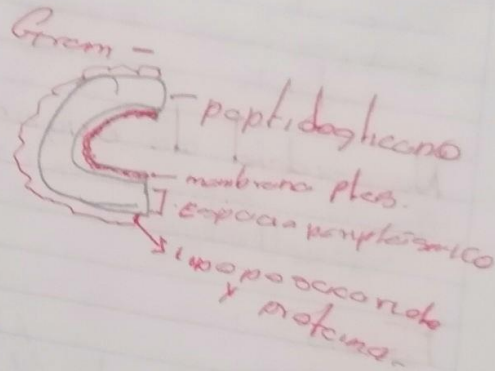 Gram -
peptidoglicano
membrana plas.
Espacio periplásmico
Lipopolisacarido
y proteina.